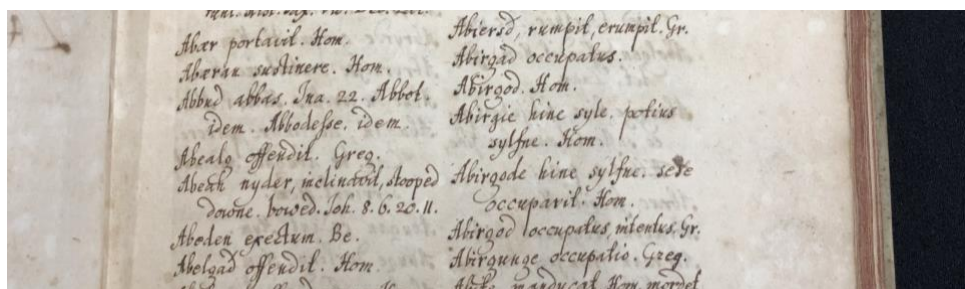 Abær portavit. Hom.
Abæran sustinere. Hom.
Abbud abbas. Ina. 22. Abbot.
idem. Abbodesse. idem.
Abealg offendit. Greg.
Abeah nyder, inclinavit, stooped
downe. bowed. Joh. 8. 6. 20. 11.
Abeden exectum. Be.
Abelgad offendit. Hom.
Abiersd, rumpit, erumpit. Gr.
Abirgad occupatus.
Abirgod. Hom.
Abirgie hine syle. potius
sylfne. Hom.
Abirgode hine sylfne. sese
occupavit. Hom.
Abirgod occupatus, intentus. Gr.
Abirgunge occupatio. Greg.
manducat Hom. mordet